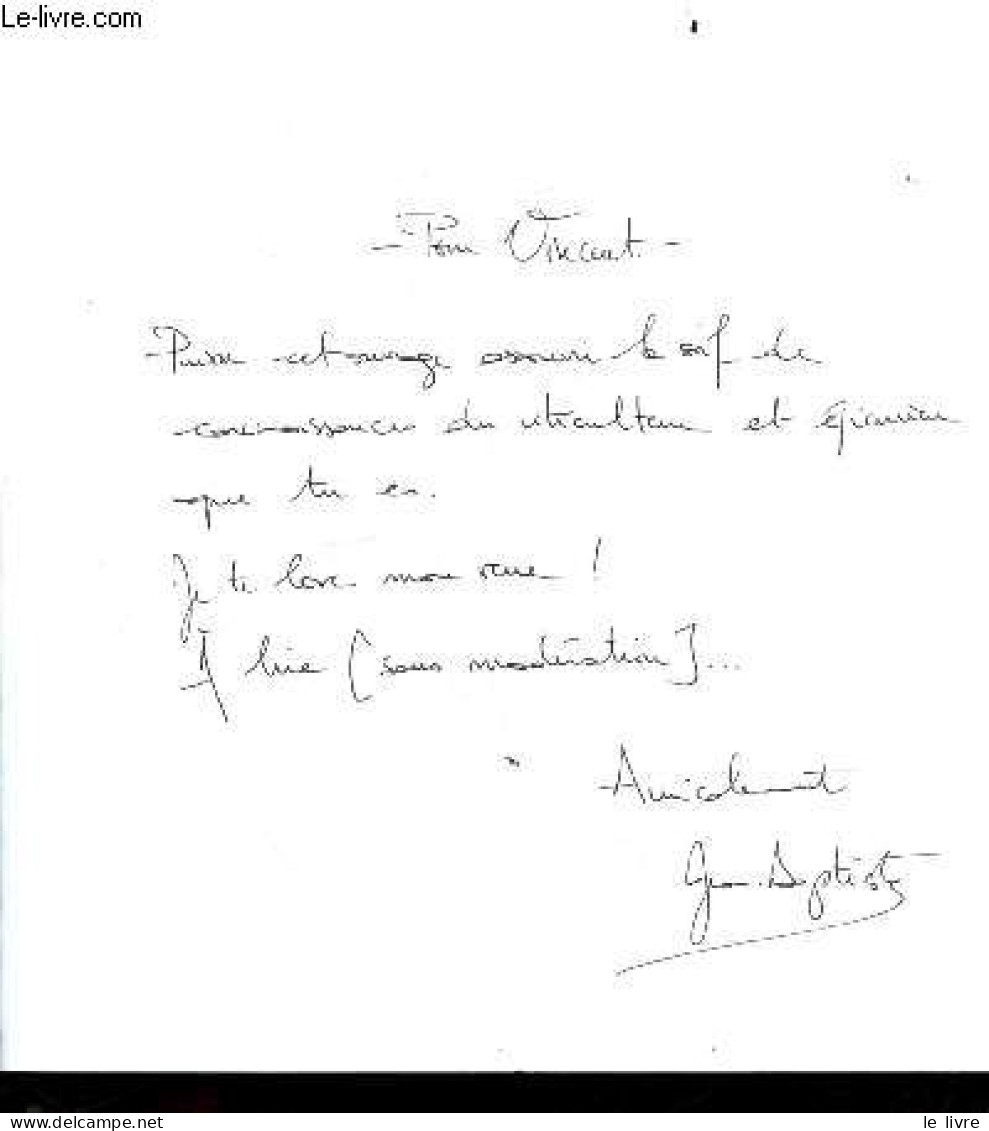 Le-livre.com
- Pour Vincent -
Puisse cet ouvrage assouvir la soif de
connaissances du viticulteur et épicurien
que tu es.
Je te love mon vieux !
A lire [sans modération]...
Amicalement
Jean-Baptiste
le livre